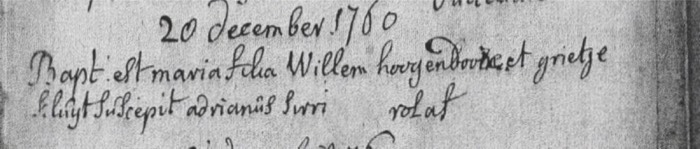 20 december 1760
Bapt: est maria filia Willem hoogendoorn et grietje
Kluyt suscepit adrianus surri rolaf